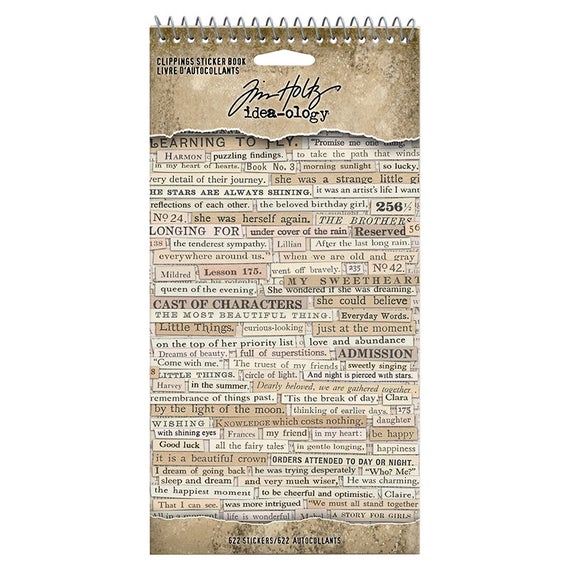 CLIPPINGS STICKER BOOK
LIVRE D'AUTOCOLLANTS
Tim Holtz
idea-ology
LEARNING TO FLY. "Promise me one thing."
HARMON puzzling findings. to take the path that winds
in my heart of hearts. Book No. 3 morning sunlight so lucky.
very detail of their journey. she was a strange little gi
THE STARS ARE ALWAYS SHINING. it was an artist's life I want
reflections of each other. the beloved birthday girl, 256½
No 24. she was herself again. THE BROTHERS
LONGING FOR under cover of the rain Reserved 56
139 the tenderest sympathy. Lillian After the last long rain.
everywhere around us. when we are old and gray
Mildred Lesson 175. went off bravely. 235 No 42.
MY SWEETHEART
queen of the evening. She wondered if she was dreaming.
CAST OF CHARACTERS she could believe
THE MOST BEAUTIFUL THING. Everyday Words.
Little Things. curious-looking just at the moment
on the top of her priority list love and abundance
Dreams of beauty. full of superstitions. ADMISSION
"Come with me." The truest of my friends sweetly singing
LITTLE THINGS. circle of light. And night is pierced with stars.
Harvey in the summer. Dearly beloved, we are gathered together
remembrance of things past. 'Tis the break of day. Clara
by the light of the moon. thinking of earlier days. 175
WISHING KNOWLEDGE which costs nothing. daughter
with shining eyes Frances my friend in my heart: be happy
Good luck all the fairy tales in gentle longing, happiness
it is a beautiful crown ORDERS ATTENDED TO DAY OR NIGHT.
I dream of going back he was trying desperately "Who? Me?"
sleep and dream and very much wiser, He was charming.
the happiest moment to be cheerful and optimistic. Claire,
That I can see. was more intrigued "We must all stand together
life is wonderful Mabel A STORY FOR GIRLS
622 STICKERS/622 AUTOCOLLANTS